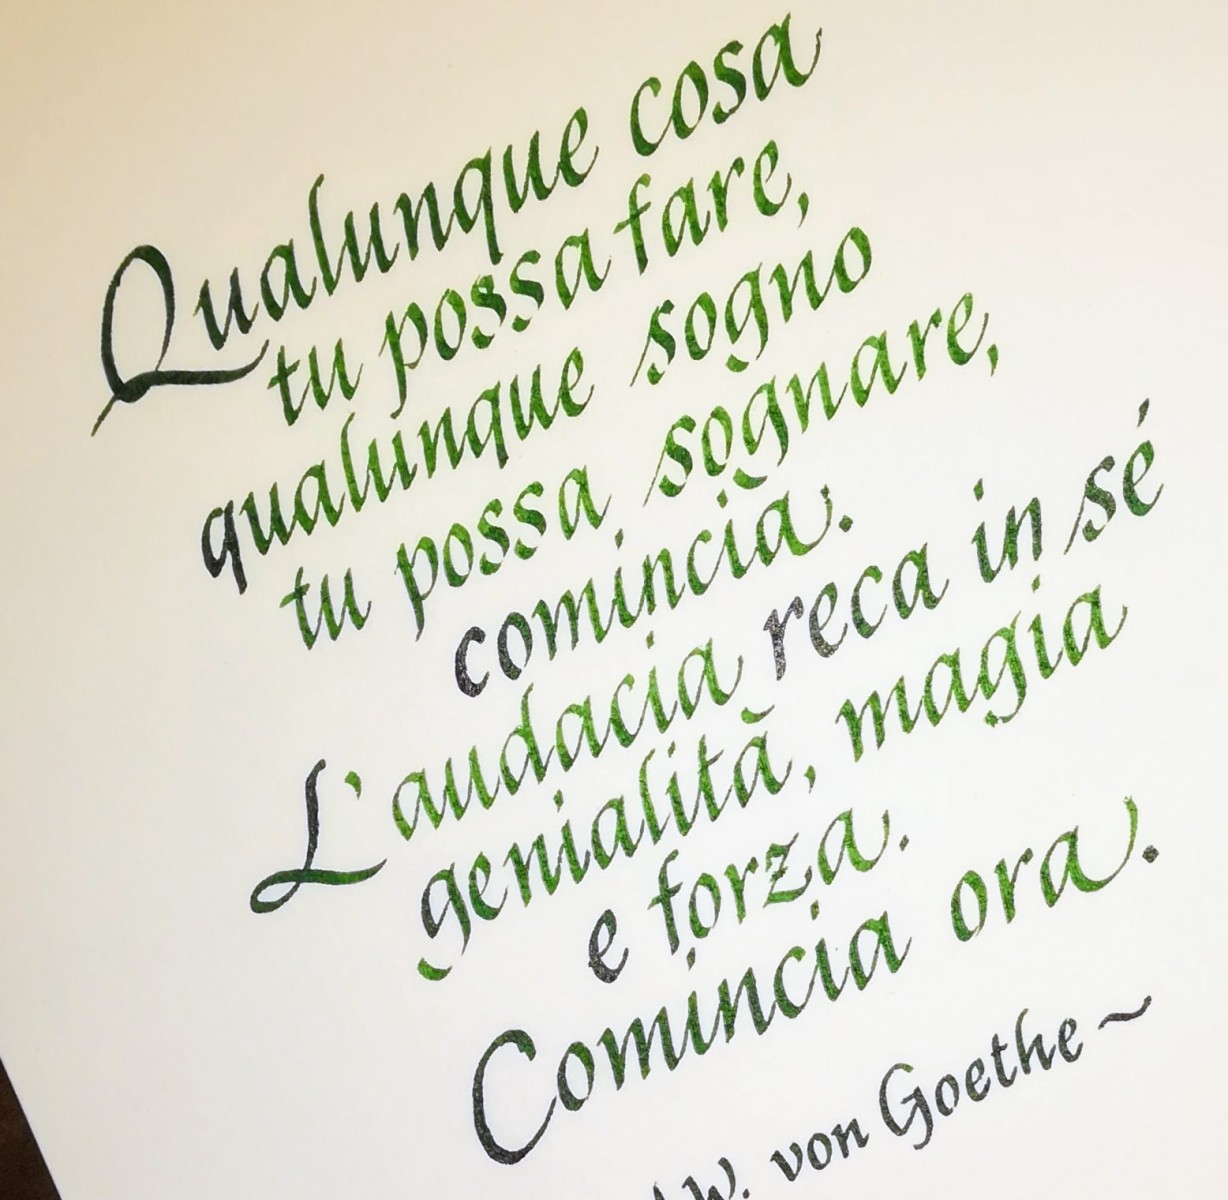 Qualunque cosa
tu possa fare,
qualunque sogno
tu possa sognare,
comincia.
L'audacia reca in sé
genialità, magia
e forza.
Comincia ora.
W. von Goethe ~